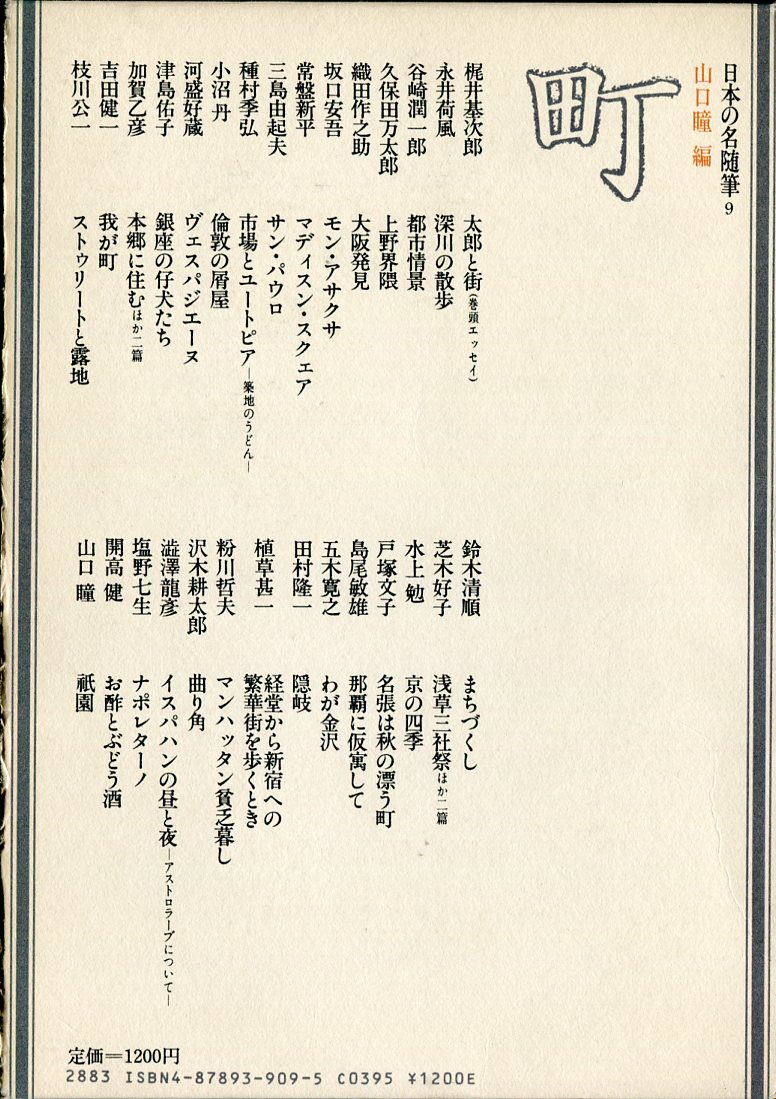 日本の名随筆 9
山口瞳 編
町
梶井基次郎 太郎と街(巻頭エッセイ)
永井荷風 深川の散歩
谷崎潤一郎 都市情景
久保田万太郎 上野界隈
織田作之助 大阪発見
坂口安吾 モン・アサクサ
常盤新平 マディスン・スクェア
三島由起夫 サン・パウロ
種村季弘 市場とユートピア―築地のうどん―
小沼 丹 倫敦の屑屋
河盛好蔵 ヴェスパジエーヌ
津島佑子 銀座の仔犬たち
加賀乙彦 本郷に住むほか二篇
吉田健一 我が町
枝川公一 ストゥリートと露地
鈴木清順 まちづくし
芝木好子 浅草三社祭ほか二篇
水上 勉 京の四季
戸塚文子 名張は秋の漂う町
島尾敏雄 那覇に仮寓して
五木寛之 わが金沢
田村隆一 隠岐
植草甚一 経堂から新宿への
繁華街を歩くとき
粉川哲夫 マンハッタン貧乏暮し
沢木耕太郎 曲り角
澁澤龍彦 イスパハンの昼と夜―アストロラーブについて―
塩野七生 ナポレターノ
開高 健 お酢とぶどう酒
山口 瞳 祇園
定価＝1200円
2883 ISBN4-87893-909-5 C0395 ¥1200E